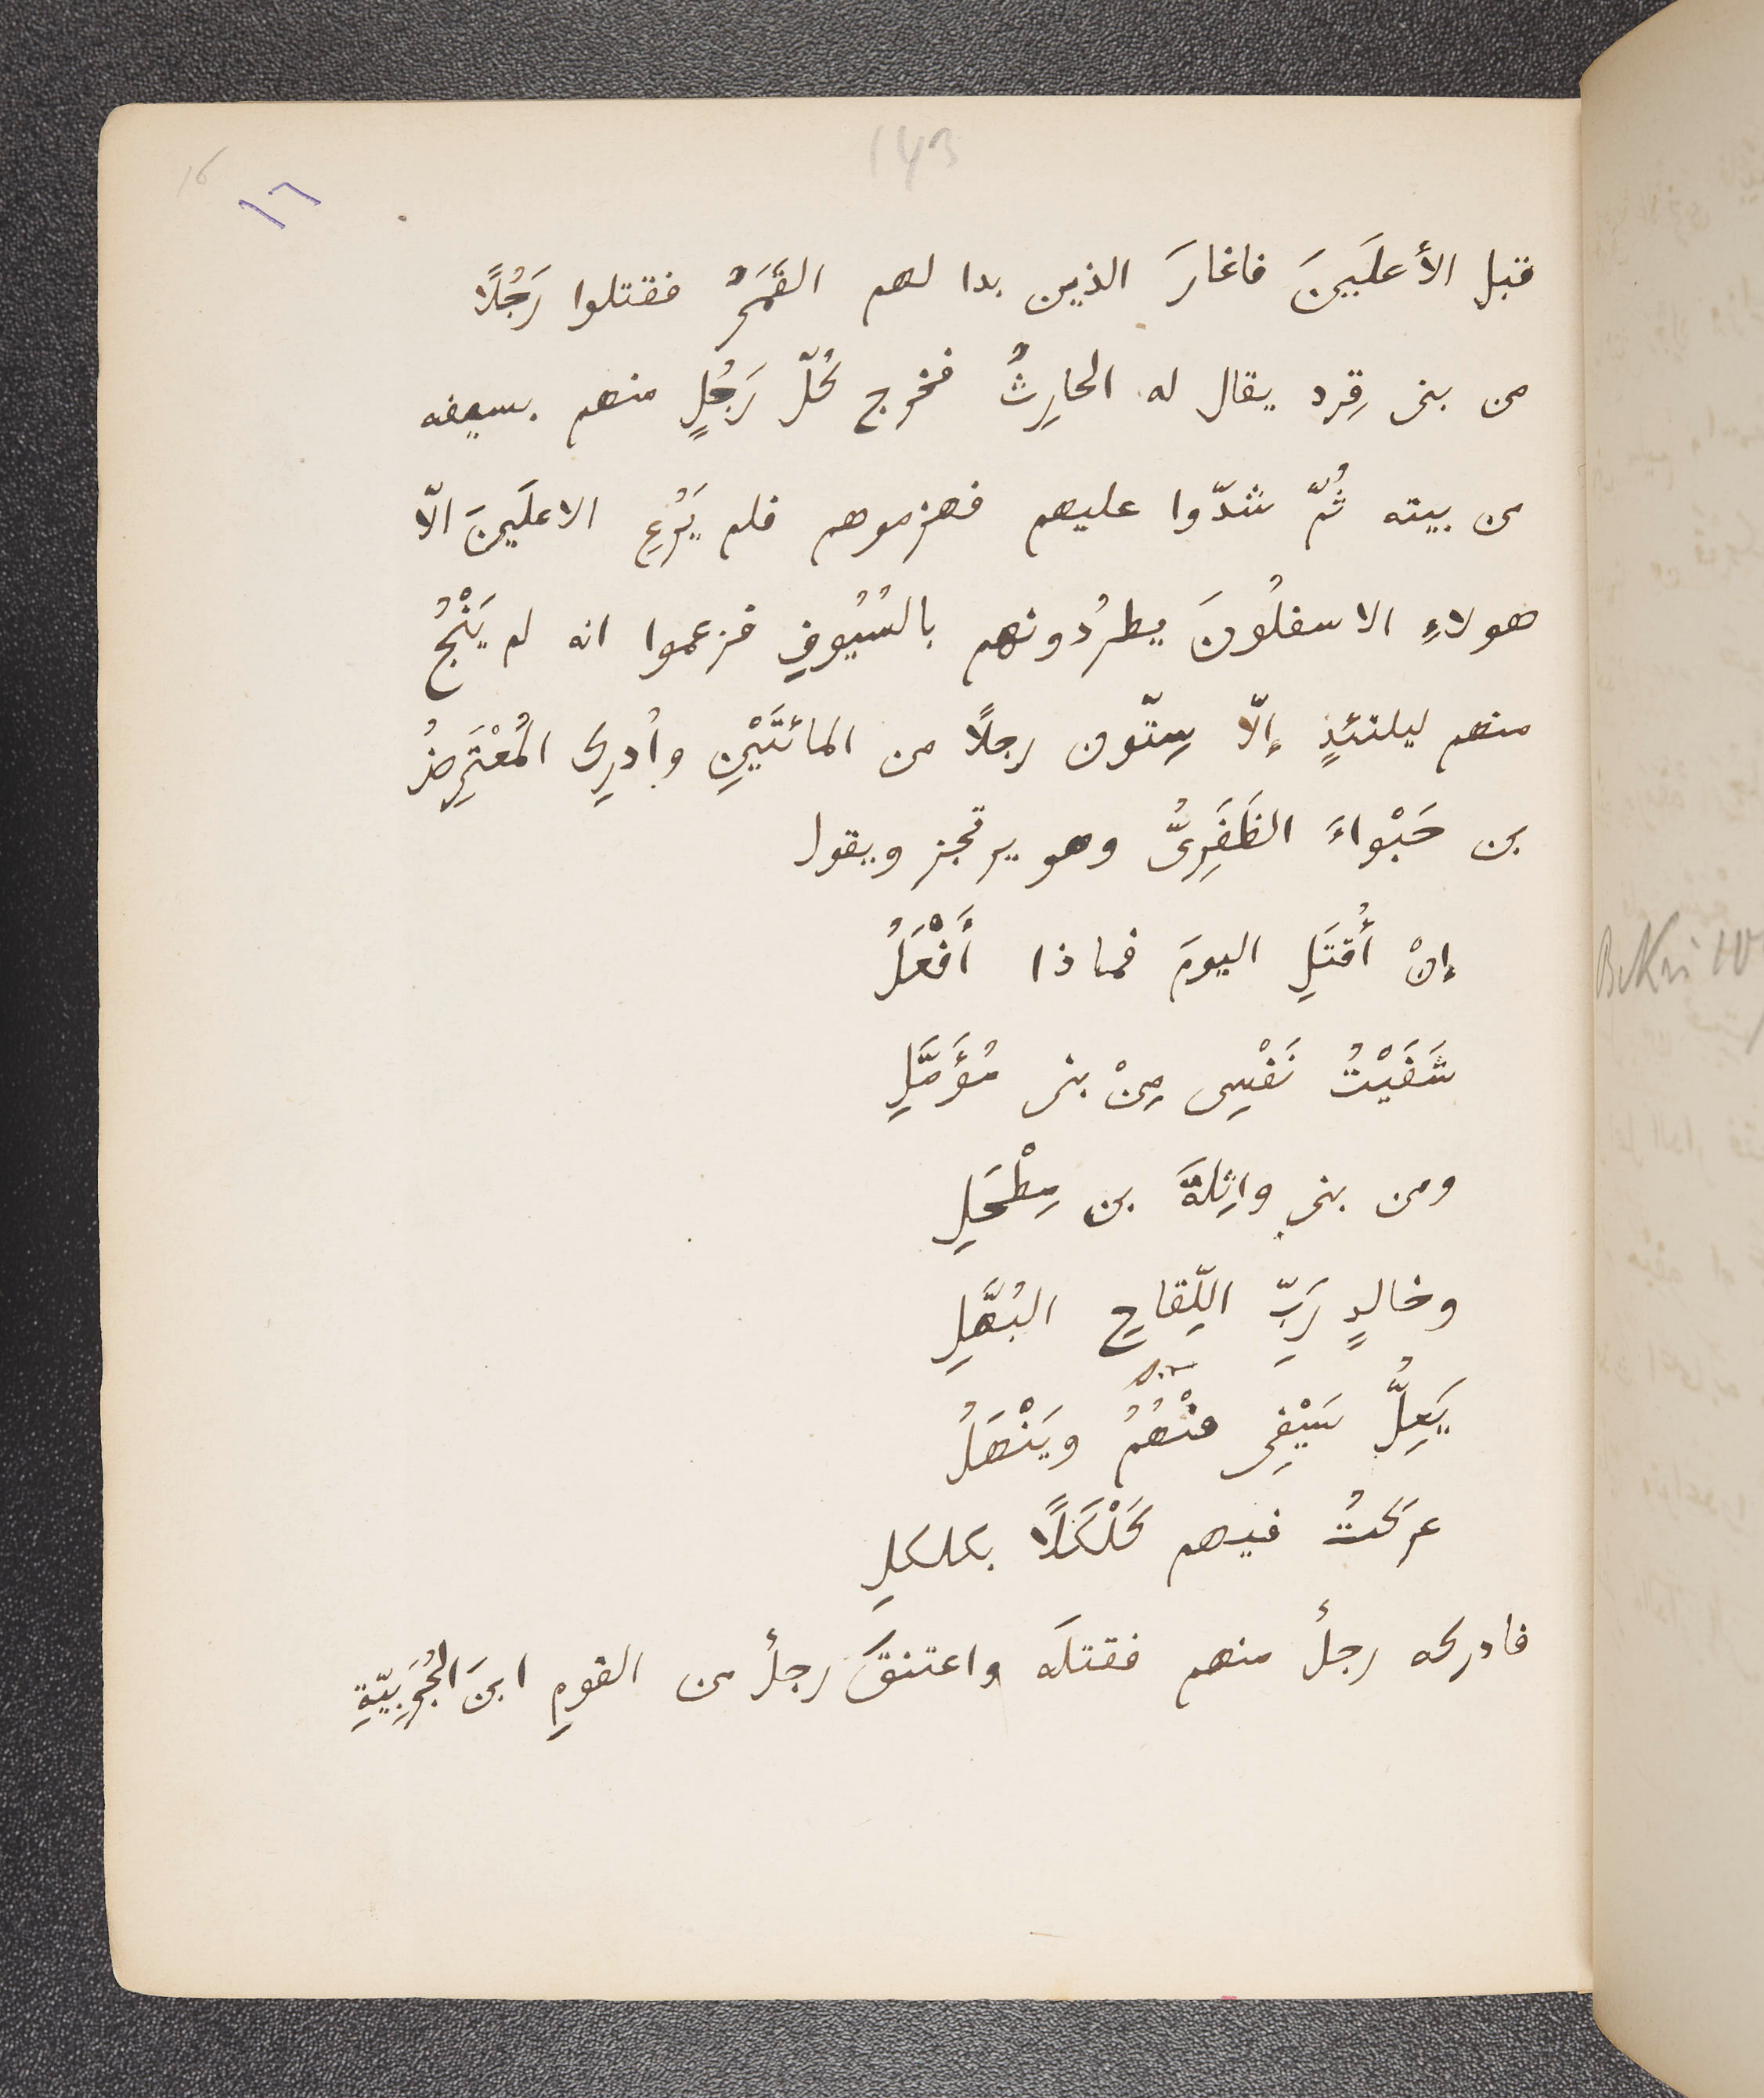 143
16
١٦
قبل الأعلَيينَ فاغارَ الذين بدا لهم القَمَرُ فقتلوا رَجُلًا
من بنى قِرد يقال له الحارِثُ فخرج كُلّ رَجُلٍ منهم بسيفه
من بيته ثُمّ شدّوا عليهم فهزموهم فلم يَرُعِ الاعلَيينَ الّا
هولاءِ الاسفلُونَ يطرُدونهم بالسُيُوفِ فزعموا انه لم يَنْجُ
منهم ليلتئذٍ إلّا سِتّون رجلًا من المائتَيْنِ واُدرِك المُعْتَرِضُ
بن حَبْواءَ الظَفَرِىُّ وهو يرتجز ويقول
إنْ أُقتَلِ اليومَ فماذا أَفْعَلُ
شَفَيْتُ نَفْسِى مِنْ بنى مُؤَمَّلِ
ومن بنى واثِلةَ بن مِطْحَلِ
وخالدٍ رَبِّ اللِّقاحِ البُهَّلِ
يَعِلُّ سَيْفِى مِنْهُمُ ويَنْهَلُ
عركتُ فيهم كَلْكَلًا بكلكلِ
فادركه رجلٌ منهم فقتلَه واعتنقَ رجلٌ من القومِ ابنَ الجُرَبِيّةِ